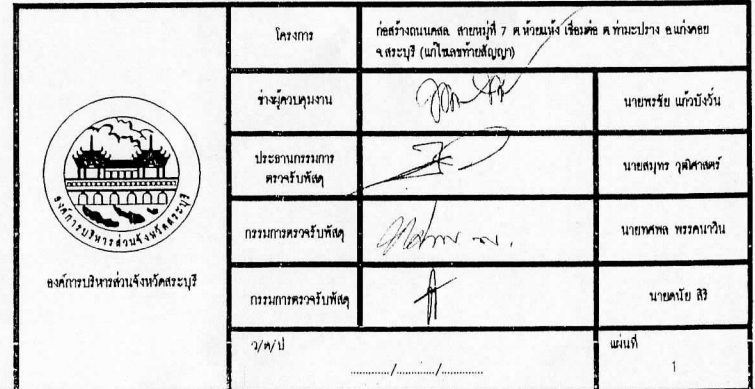 องค์การบริหารส่วนจังหวัดสระบุรี
องค์การบริหารส่วนจังหวัดสระบุรี
โครงการ
ก่อสร้างถนนคสล. สายหมู่ที่ 7 ต.ห้วยแห้ง เชื่อมต่อ ต.ท่ามะปราง อ.แก่งคอย
จ.สระบุรี (แก้ไขเลขท้ายสัญญา)
ช่างผู้ควบคุมงาน
นายพรชัย แก้วบังวัน
ประธานกรรมการ
ตรวจรับพัสดุ
นายสมุทร วุฒิศาสตร์
กรรมการตรวจรับพัสดุ
นายทศพล พรรคนาวิน
กรรมการตรวจรับพัสดุ
นายดนัย สิริ
ว/ด/ป
............./............./.............
แผ่นที่
1